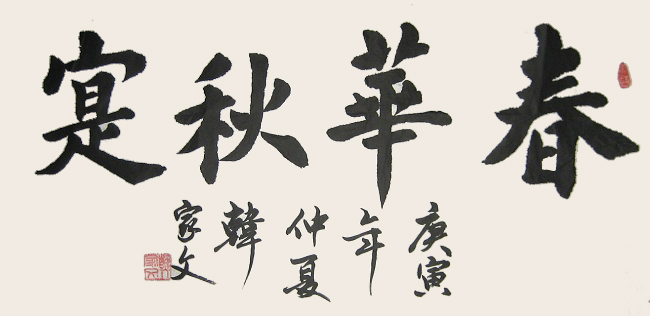 春華秋寔
庚寅年仲夏韓家文